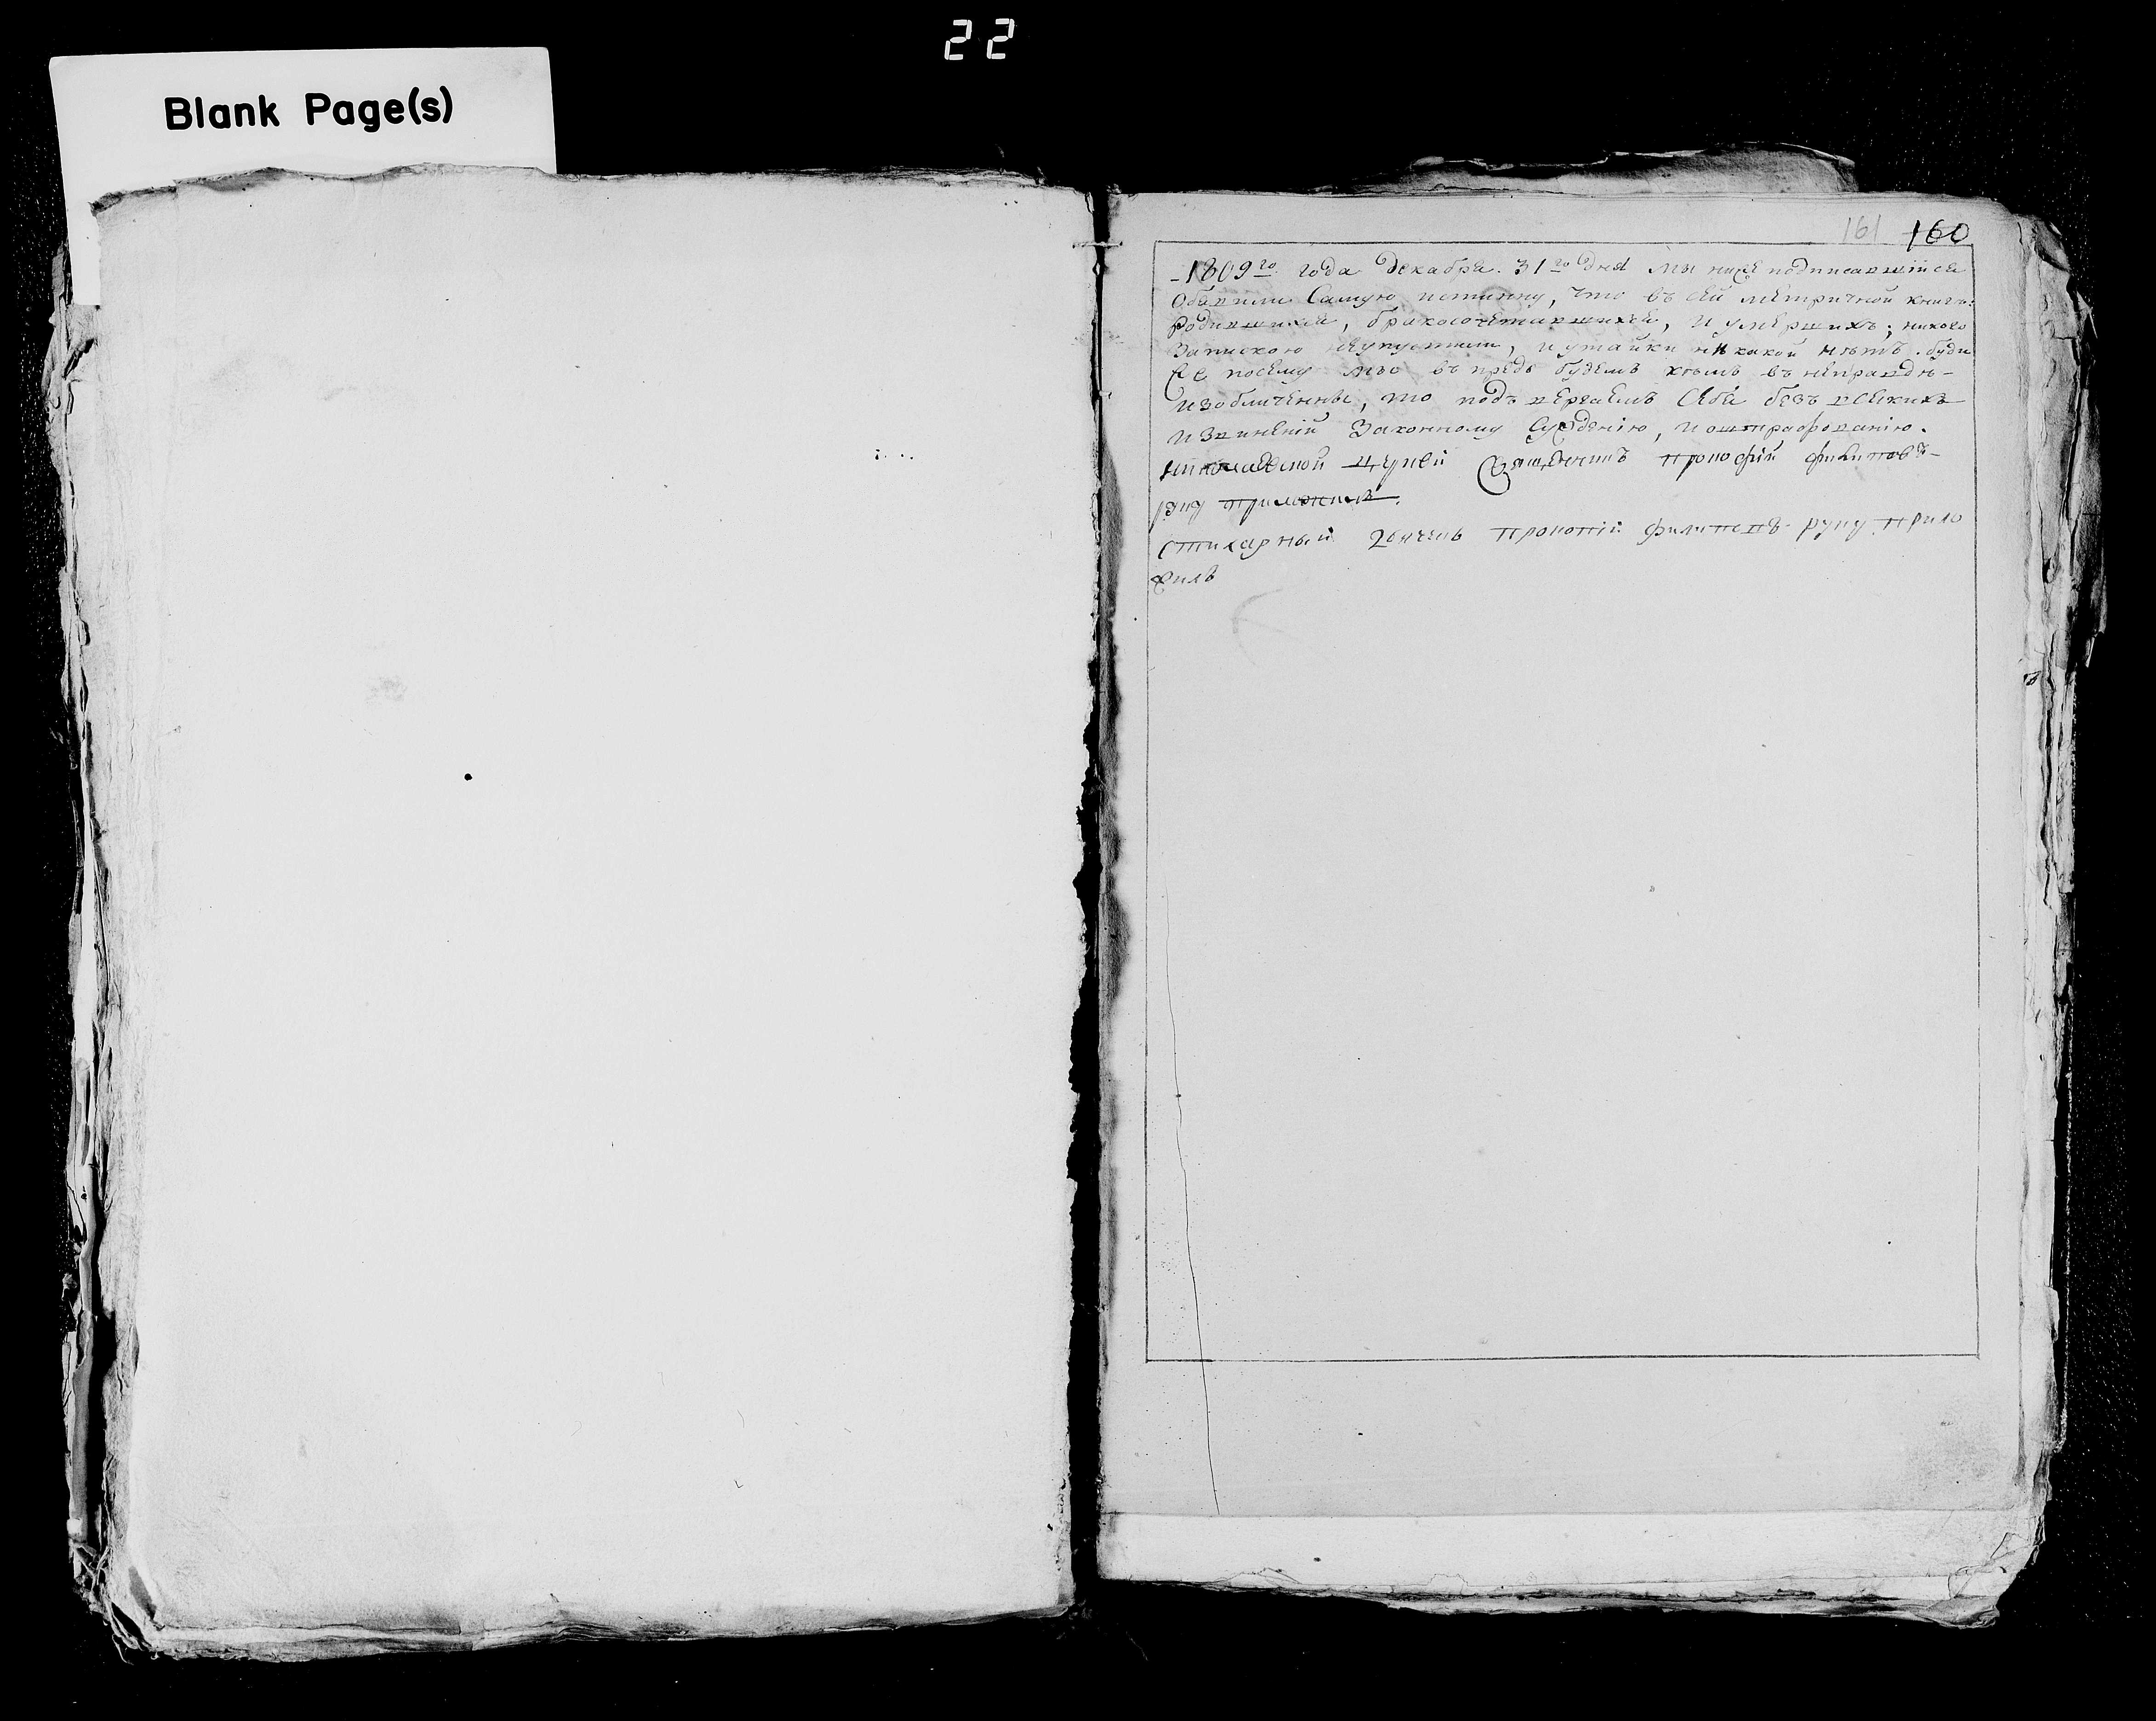 22
Blank Page(s)
161 160
-1809го года декабря 31го дня мы ниже подписавшійся
Объявили самую истинну, что въ сей метричной книге:
Родившихся, бракосочетавшихся, и умершихъ, никого
Запискою неупустили, и утайки никакой нѣтъ. буди
же посему въ предь будемъ кѣмъ въ неправдѣ-
изобличенны, то подъ вергаемъ себя безъ всякихъ
извиненій Законному Сужденію, и оштрафованію.
церкви священникъ Филиповъ-
руку приложилъ.
стихарный Прокопій Филиповъ руку прило
жилъ